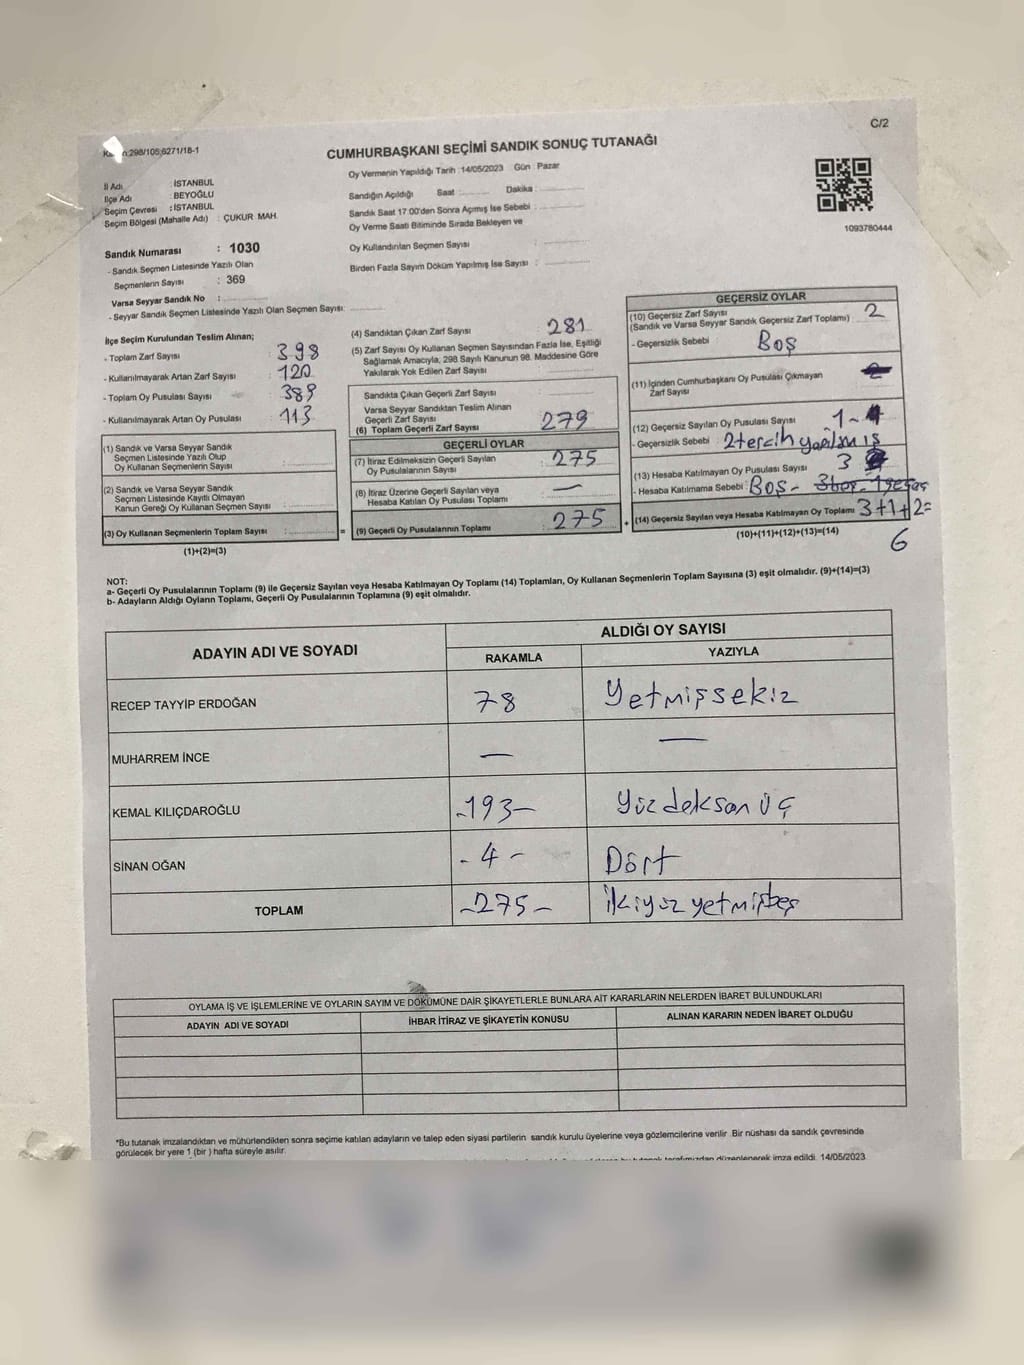 C/2
Kanun:298/105;6271/18-1
CUMHURBAŞKANI SEÇİMİ SANDIK SONUÇ TUTANAĞI
Oy Vermenin Yapıldığı Tarih :14/05/2023 Gün : Pazar
İl Adı : İSTANBUL
İlçe Adı : BEYOĞLU
Seçim Çevresi : İSTANBUL
Seçim Bölgesi (Mahalle Adı) : ÇUKUR MAH.
Sandık Numarası : 1030
- Sandık Seçmen Listesinde Yazılı Olan
Seçmenlerin Sayısı : 369
Varsa Seyyar Sandık No :
- Seyyar Sandık Seçmen Listesinde Yazılı Olan Seçmen Sayısı:
Sandığın Açıldığı Saat : Dakika :
Sandık Saat 17.00'den Sonra Açmış İse Sebebi :
Oy Verme Saati Bitiminde Sırada Bekleyen ve
Oy Kullandırılan Seçmen Sayısı :
Birden Fazla Sayım Döküm Yapılmış İse Sayısı :
1093780444
İlçe Seçim Kurulundan Teslim Alınan;
- Toplam Zarf Sayısı : 398
- Kullanılmayarak Artan Zarf Sayısı : 120
- Toplam Oy Pusulası Sayısı : 389
- Kullanılmayarak Artan Oy Pusulası : 113
(1) Sandık ve Varsa Seyyar Sandık
Seçmen Listesinde Yazılı Olup
Oy Kullanan Seçmenlerin Sayısı :
(2) Sandık ve Varsa Seyyar Sandık
Seçmen Listesinde Kayıtlı Olmayan
Kanun Gereği Oy Kullanan Seçmen Sayısı :
(3) Oy Kullanan Seçmenlerin Toplam Sayısı : =
(1)+(2)=(3)
(4) Sandıktan Çıkan Zarf Sayısı : 281
(5) Zarf Sayısı Oy Kullanan Seçmen Sayısından Fazla İse, Eşitliği
Sağlamak Amacıyla, 298 Sayılı Kanunun 98. Maddesine Göre
Yakılarak Yok Edilen Zarf Sayısı :
Sandıkta Çıkan Geçerli Zarf Sayısı :
Varsa Seyyar Sandıktan Teslim Alınan
Geçerli Zarf Sayısı :
(6) Toplam Geçerli Zarf Sayısı : 279
GEÇERLİ OYLAR
(7) İtiraz Edilmeksizin Geçerli Sayılan
Oy Pusulalarının Sayısı : 275
(8) İtiraz Üzerine Geçerli Sayılan veya
Hesaba Katılan Oy Pusulası Toplamı : —
(9) Geçerli Oy Pusulalarının Toplamı : 275 +
GEÇERSİZ OYLAR
(10) Geçersiz Zarf Sayısı
(Sandık ve Varsa Seyyar Sandık Geçersiz Zarf Toplamı) : 2
- Geçersizlik Sebebi : Boş
(11) İçinden Cumhurbaşkanı Oy Pusulası Çıkmayan
Zarf Sayısı
(12) Geçersiz Sayılan Oy Pusulası Sayısı : 1-
- Geçersizlik Sebebi : 2 tercih yapılmış
(13) Hesaba Katılmayan Oy Pusulası Sayısı : 3
- Hesaba Katılmama Sebebi : Boş -
(14) Geçersiz Sayılan veya Hesaba Katılmayan Oy Toplamı : 3+1+2=
6
(10)+(11)+(12)+(13)=(14)
NOT:
a- Geçerli Oy Pusulalarının Toplamı (9) ile Geçersiz Sayılan veya Hesaba Katılmayan Oy Toplamı (14) Toplamları, Oy Kullanan Seçmenlerin Toplam Sayısına (3) eşit olmalıdır. (9)+(14)=(3)
b- Adayların Aldığı Oyların Toplamı, Geçerli Oy Pusulalarının Toplamına (9) eşit olmalıdır.
ADAYIN ADI VE SOYADI
ALDIĞI OY SAYISI
RAKAMLA YAZIYLA
RECEP TAYYİP ERDOĞAN 78 Yetmişsekiz
MUHARREM İNCE — —
KEMAL KILIÇDAROĞLU -193- Yüzdeksanüç
SİNAN OĞAN -4- Dört
TOPLAM -275- İkiyüzyetmişbeş
OYLAMA İŞ VE İŞLEMLERİNE VE OYLARIN SAYIM VE DÖKÜMÜNE DAİR ŞİKAYETLERLE BUNLARA AİT KARARLARIN NELERDEN İBARET BULUNDUKLARI
ADAYIN ADI VE SOYADI İHBAR İTİRAZ VE ŞİKAYETİN KONUSU ALINAN KARARIN NEDEN İBARET OLDUĞU
*Bu tutanak imzalandıktan ve mühürlendikten sonra seçime katılan adayların ve talep eden siyasi partilerin sandık kurulu üyelerine veya gözlemcilerine verilir. Bir nüshası da sandık çevresinde
görülecek bir yere 1 (bir ) hafta süreyle asılır.
tarafımızdan düzenlenerek imza edildi. 14/05/2023